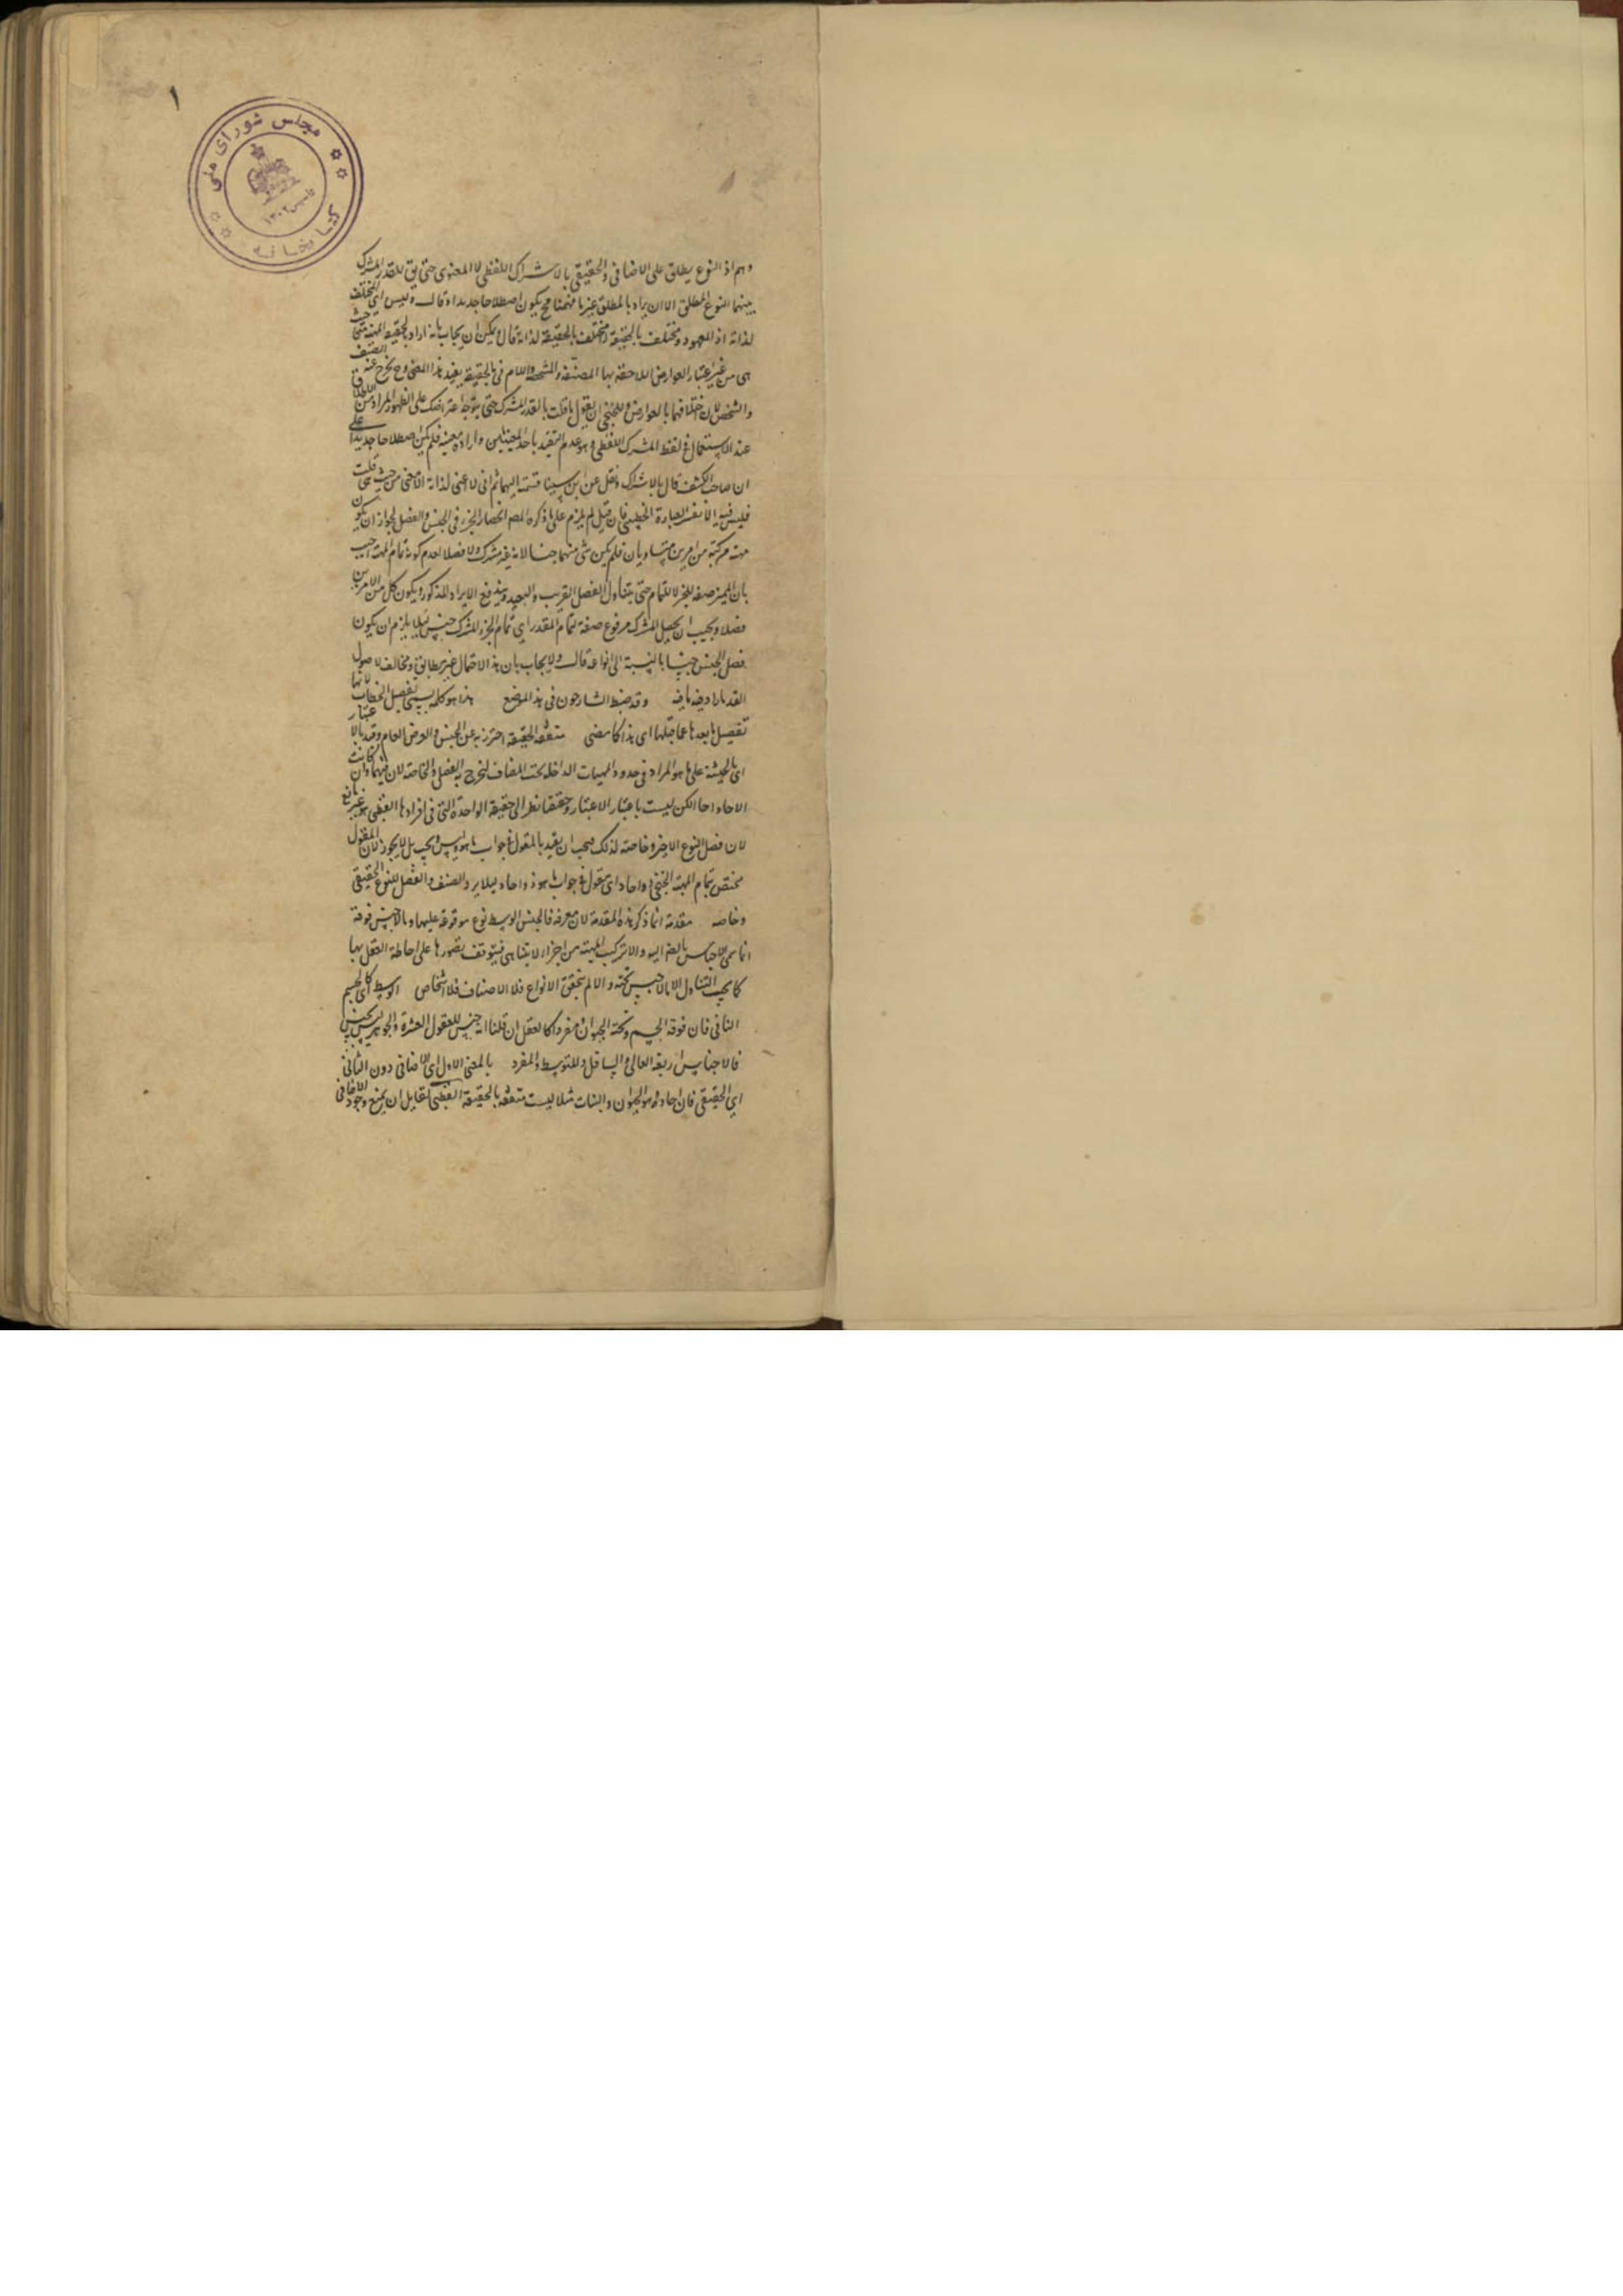 ١
مجلس شورای ملی
کتابخانه
تاسیس ١٣٠٢
وهم اذ النوع يطلق على الاضافى والحقيقى بالاشتراك اللفظى لا المعنوى حتى يق للقدر المشترك
بينهما النوع المطلق الا ان يراد بالمطلق غير ما فهمنا فح يكون اصطلاحا جديدا وقال وليس اى المختلف
لذاته اذ المعهود ومختلف بالحقيقة ومختلف بالحقيقة لذاته قال ويمكن ان يجاب بانه اراد بالحقيقة المهية حيث
هى من غير اعتبار العوارض اللاحقة بها المصنفة والمشخصة واللام فى بالحقيقة يفيد هذا المعنى وح يخرج عنه الصنف
والشخص لان اختلافهما بالعوارض وللخنجى ان يقول ما قلت بالقدر المشترك حتى يتوجه اعتراضك على الظهور المراد من الاطلاق
عند الاستعمال فى لفظ المشترك اللفظى هو عدم التقييد باحد المعينين وارادة معينه فلم يكن اصطلاحا جديدا على
ان صاحب الكشف قال بالاشتراك ونقل عن ابن سينا قسمته اليهما ثم انى لا اعنى لذاته الا معنى من حيث هى قلت
فليس فيه الا تفسير العبارة الخطبينى فان قيل لم يلزم على ما ذكره المص انحصار الجزء فى الجنس والفصل لجواز ان يكون
مهية مركبة من امرين متساويان فلم يكن شى منهما جنسا لانه غير مشترك ولا فصلا لعدم كونه تمام المهية اجيب
بان المميز صفة للجزء لا للتمام حتى يتناول الفصل القريب والبعيد ويندفع الايراد المذكور ويكون كل من الامرين
فصلا ويجيب ان يجعل المشترك مرفوع صفة لتمام المقدر اى تمام الجزء المشترك جنس لئلا يلزم ان يكون
فصل الجنس جنسا بالنسبة الى انواعه قال ولا يجاب بان هذا الاحتمال غير مطابق ومخالف لاصول
القدما اذ فيه ما فيه وقد ضبط الشارحون فى هذا الموضع هذا هو كلمه يسمى بفصل الخطاب لانها
تفصيل ما بعدها عما قبلها اى هذا كما مضى متفقة الحقيقة احترز به عن الجنس والعرض العام وقيد بالاعتبار
اى بالحيثية على ما هو المراد فى حدود المهيات الداخلة تحت المضاف لتخرج به الفصل والخاصة لان فيهما وان كانت
الاحاد احادا لكن ليست باعتبار الاعتبار وحققا نظر الى حقيقة الواحدة التى فى افرادها القطبى هو غير مانع
لان فصل النوع الاخير وخاصته لذلك فيجب ان يقيد بالمقول فى جواب ما هو وليس يجب بل لا يجوز لان المقول
مختص بتمام المهية الخنجى واحاد اى مقول فى جواب ما هو ذو احاد لئلا يرد الصنف والفصل للنوع الحقيقى
وخاصه مقدمة انما ذكر هذه المقدمة لان معرفة فالجنس الوسط نوع موقوفة عليها وما لا جنس فوقه
انما سمى للاجناس بالضم اليه والا تركب المهية من اجزاء لا يتناهى فيتوقف تصورها على احاطة العقل بها
كما يجب التناول الا ما لا جنس تحته والا لم يتحقق الانواع فلا الاصناف فلا اشخاص الوسط كالجسم
النامى فان فوقه الجسم وتحته الحيوان مفردا كالعقل ان قلنا انه جنس للعقول العشرة والجوهر ليس بجنس
فالاجناس اربعة العالى والسافل والمتوسط والمفرد بالمعنى الاول اى الاضافى دون الثانى
اى الحقيقى فان احاده هو الحيوان والنبات مثلا ليست متفقه بالحقيقة القطبى لقايل ان يمنع وجود الاضافى